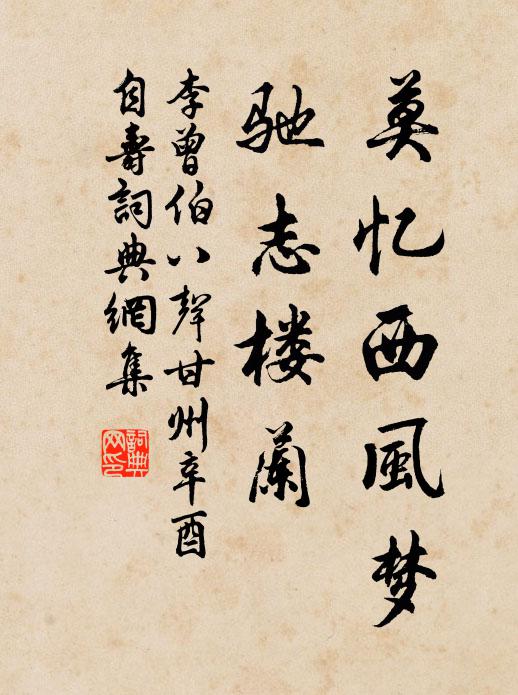 莫忆西風梦
驰志楼蘭
李曾伯八聲甘州辛酉
自壽詞典網集
詞典網印